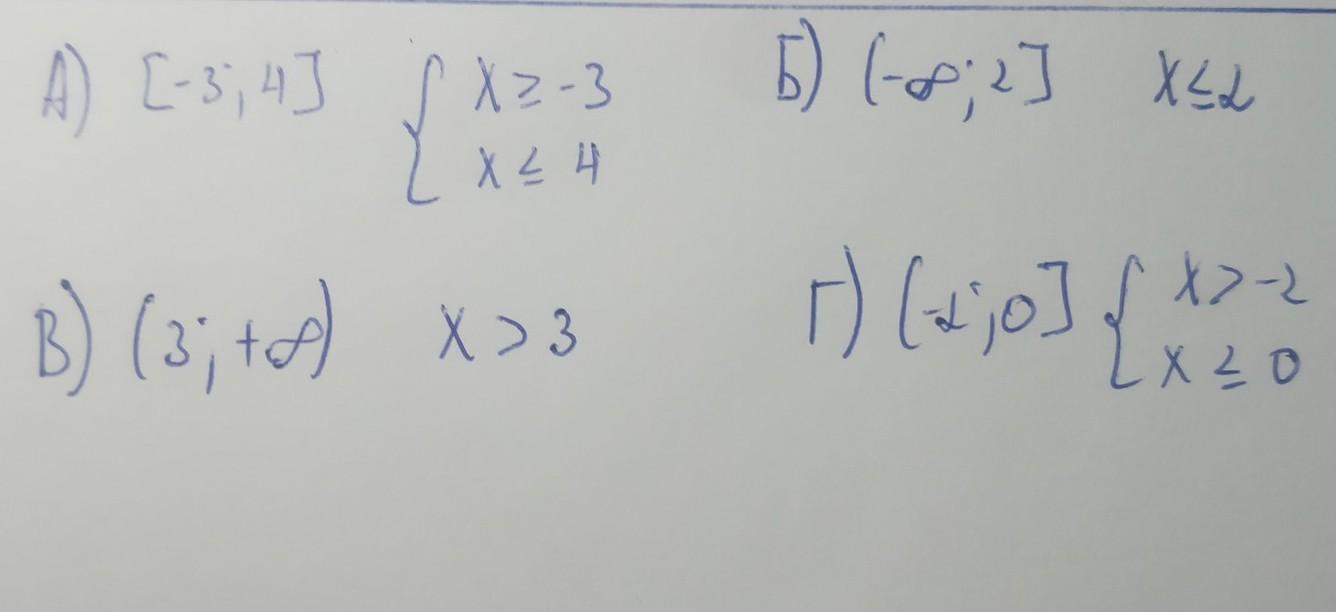 А) [-3; 4] { x ≥ -3
x ≤ 4
Б) (-∞; 2] x ≤ 2
В) (3; +∞) x > 3
Г) (-2; 0] { x > -2
x ≤ 0